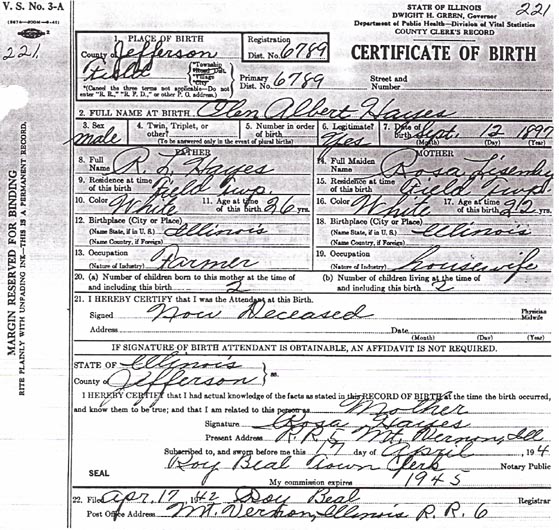 V. S. No. 3-A
221
STATE OF ILLINOIS
DWIGHT H. GREEN, Governor
Department of Public Health—Division of Vital Statistics
COUNTY CLERK'S RECORD
CERTIFICATE OF BIRTH
221
MARGIN RESERVED FOR BINDING
RITE PLAINLY WITH UNFADING INK—THIS IS A PERMANENT RECORD.
1. PLACE OF BIRTH
County of Jefferson
Registration Dist. No. 6789
Field
*Township
Road Dist.
Village
City
Primary Dist. No. 6789
Street and Number
*(Cancel the three terms not applicable—Do not enter "R. R.," "R. F. D.," or other P. O. address)
2. FULL NAME AT BIRTH Glen Albert Hayes
3. Sex male
4. Twin, Triplet, or other?
5. Number in order of birth
(To be answered only in the event of plural births)
6. Legitimate? Yes
7. Date of birth Sept. 12 1890
(Month) (Day) (Year)
FATHER
8. Full Name R L Hayes
9. Residence at time of this birth Field Twp.
10. Color White
11. Age at time of this birth 26 yrs.
12. Birthplace (City or Place)
(Name State, if in U. S.) Illinois
(Name Country, if Foreign)
13. Occupation
(Nature of Industry) Farmer
MOTHER
14. Full Maiden Name Rosa Lisenby
15. Residence at time of this birth Field Twp
16. Color White
17. Age at time of this birth 22 yrs.
18. Birthplace (City or Place)
(Name State, if in U. S.) Illinois
(Name Country, if Foreign)
19. Occupation
(Nature of Industry) housewife
20. (a) Number of children born to this mother at the time of and including this birth 2
(b) Number of children living at the time of and including this birth 2
21. I HEREBY CERTIFY that I was the Attendant at this Birth.
Signed Now Deceased
Physician
Midwife
Address
Date
(Month) (Day) (Year)
IF SIGNATURE OF BIRTH ATTENDANT IS OBTAINABLE, AN AFFIDAVIT IS NOT REQUIRED.
STATE OF Illinois
County of Jefferson
} ss.
I HEREBY CERTIFY that I had actual knowledge of the facts as stated in this RECORD OF BIRTH at the time the birth occurred,
and know them to be true; and that I am related to this person as Mother
Signature Rosa Hayes
Present Address R. R. 5 Mt. Vernon, Ill
Subscribed to, and sworn before me this 17 day of April, 194
Roy Beal Town Clerk Notary Public
SEAL
My commission expires 1945
22. Filed Apr. 17 1942 Roy Beal Registrar
Post Office Address Mt. Vernon, Illinois R. R. 6